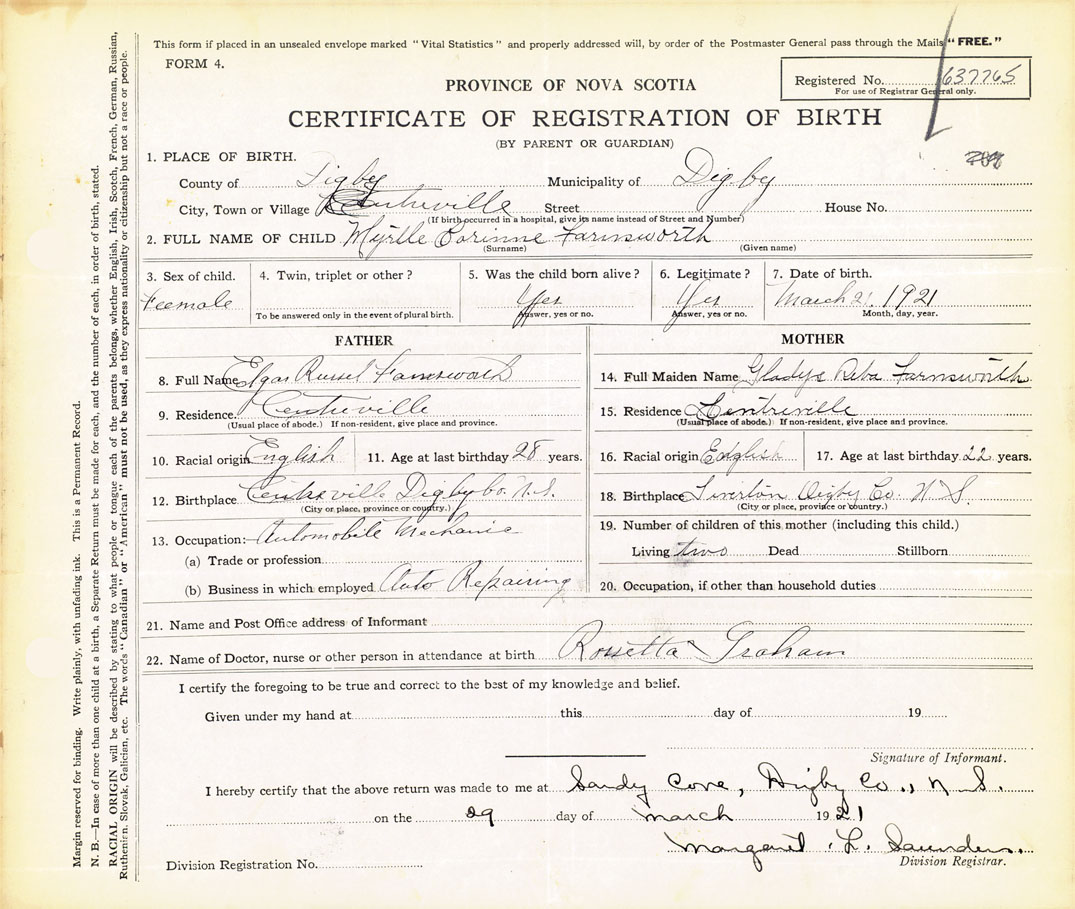 This form if placed in an unsealed envelope marked "Vital Statistics" and properly addressed will, by order of the Postmaster General pass through the Mails "FREE."
FORM 4.
Registered No. 637765
For use of Registrar General only.
PROVINCE OF NOVA SCOTIA
CERTIFICATE OF REGISTRATION OF BIRTH
(BY PARENT OR GUARDIAN)
1. PLACE OF BIRTH.
County of Digby Municipality of Digby
City, Town or Village Centreville Street House No.
(If birth occurred in a hospital, give its name instead of Street and Number)
2. FULL NAME OF CHILD Myrtle Corinne Farnsworth
(Surname) (Given name)
3. Sex of child. 4. Twin, triplet or other? 5. Was the child born alive? 6. Legitimate? 7. Date of birth.
Feemale Yes Yes March 21, 1921
To be answered only in the event of plural birth. Answer, yes or no. Answer, yes or no. Month, day, year.
FATHER
8. Full Name Elgar Russel Farnsworth
9. Residence. Centreville
(Usual place of abode.) If non-resident, give place and province.
10. Racial origin English 11. Age at last birthday 28 years.
12. Birthplace Centreville Digby Co. N.S.
(City or place, province or country.)
13. Occupation:— Automobile Mechanic
(a) Trade or profession
(b) Business in which employed Auto Repairing
MOTHER
14. Full Maiden Name Gladys Reba Farnsworth
15. Residence Centreville
(Usual place of abode.) If non-resident, give place and province.
16. Racial origin English 17. Age at last birthday 22 years.
18. Birthplace Tiverton Digby Co. N S.
(City or place, province or country.)
19. Number of children of this mother (including this child.)
Living two Dead Stillborn
20. Occupation, if other than household duties
21. Name and Post Office address of Informant
22. Name of Doctor, nurse or other person in attendance at birth Rossetta Graham
I certify the foregoing to be true and correct to the best of my knowledge and belief.
Given under my hand at this day of 19
Signature of Informant.
I hereby certify that the above return was made to me at Sandy Cove, Digby Co., N.S.
on the 29 day of March 1921
Margaret L. Saunders.
Division Registrar.
Division Registration No.
Margin reserved for binding. Write plainly, with unfading ink. This is Permanent Record.
N. B.—In case of more than one child at a birth, a Separate Return must be made for each, and the number of each, in order of birth, stated.
RACIAL ORIGIN will be described by stating to what people or tongue each of the parents belongs, whether English, Irish, Scotch, French, German, Russian,
Ruthenirn, Slovak, Galician, etc. The words "Canadian" or "American" must not be used, as they express nationality or citizenship but not a race or people.